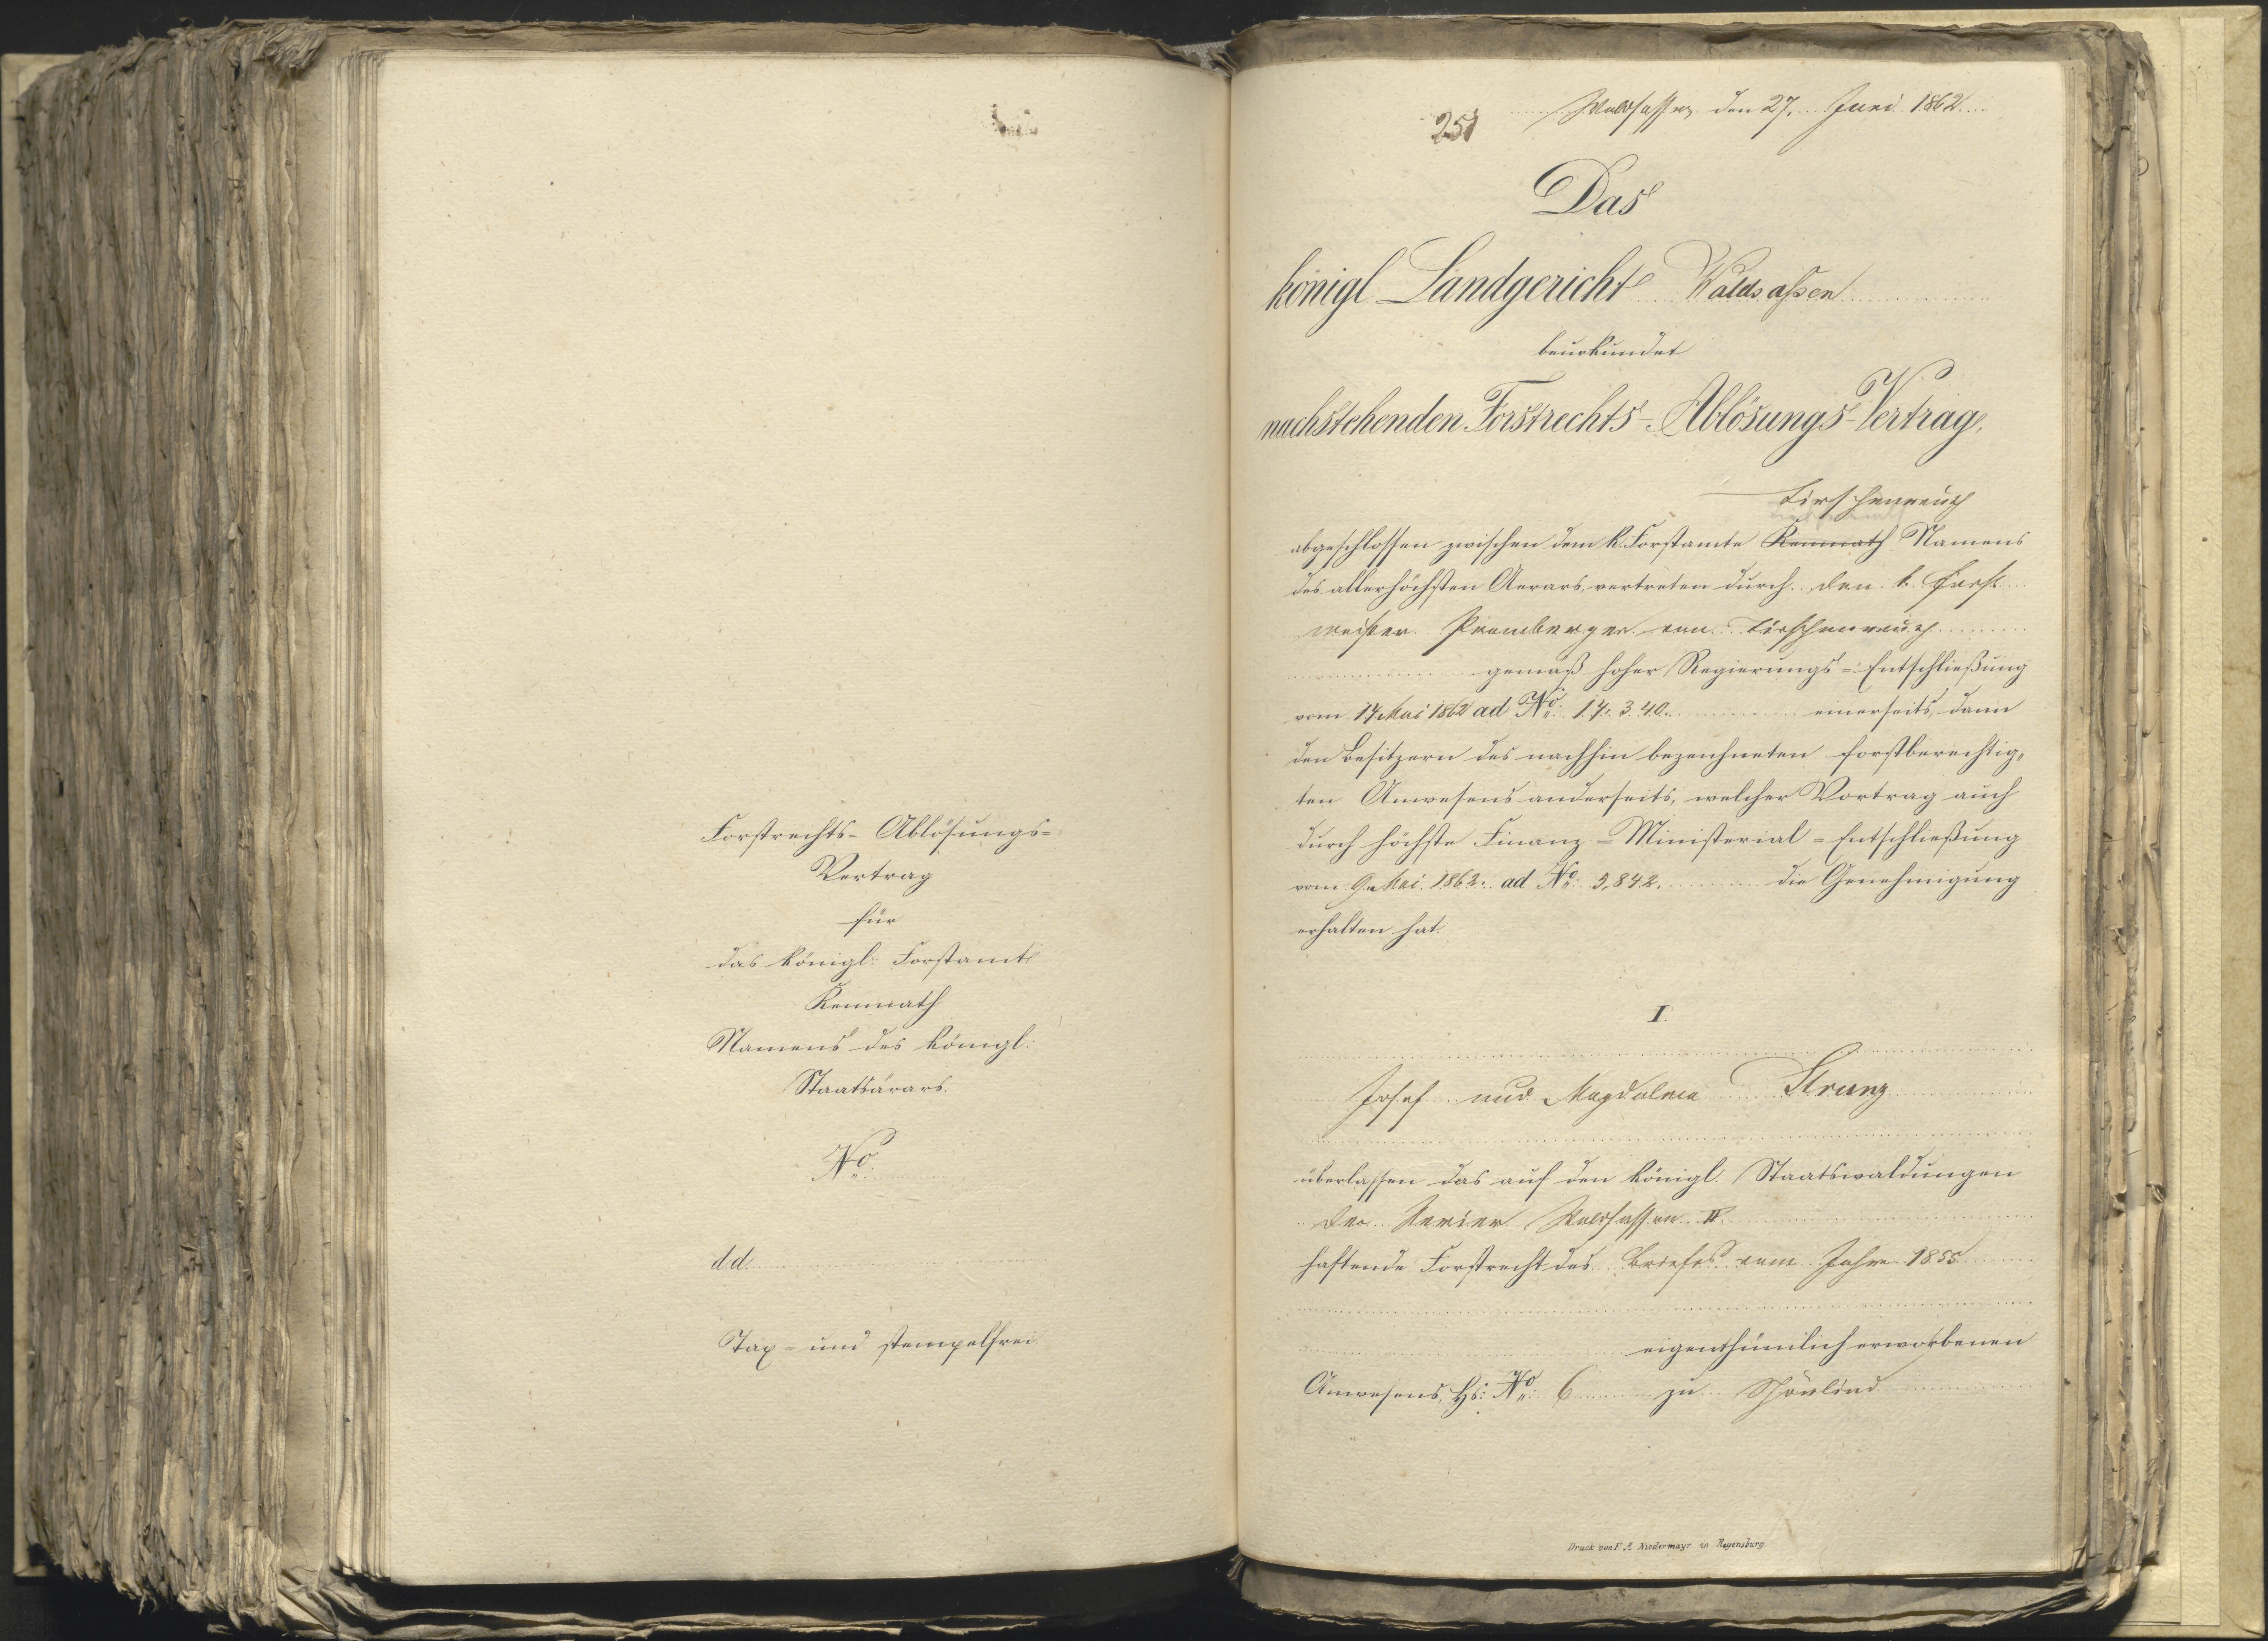 Forstrechts- Ablösungs-
Vertrag
für
das königl: Forstamt
Kemnath
Namens des königl:
Staatsärars.
No.
d.d.
Tax- und stempelfrei.
251
Waldsassen den 27. Juni 1862
Das
königl. Landgericht Waldsassen
beurkundet
nachstehenden Forstrechts-Ablösungs-Vertrag,
Tirschenreuth
abgeschlossen zwischen dem k. Forstamte Kemnath Namens
des allerhöchsten Aerars, vertreten durch den k. Forst
meister Promberger von Tirschenreuth
gemäß hoher Regierungs-Entschließung
vom 14 Mai 1862 ad No. 17,340. einerseits, dann
den Besitzern des nachhin bezeichneten forstberechtig-
ten Anwesens anderseits, welcher Vertrag auch
durch höchste Finanz-Ministerial-Entschließung
vom 9. Mai 1862. ad No. 5,842. die Genehmigung
erhalten hat.
I.
Josef und Magdalena Strunz
überlassen das auf den königl. Staatswaldungen
der Revier Waldsassen II.
haftende Forstrecht des Briefes vom Jahre 1855
eigenthümlich erworbenen
Anwesens, Hs: No. 6 zu Schönlind
Druck von F. A. Niedermayr in Regensburg